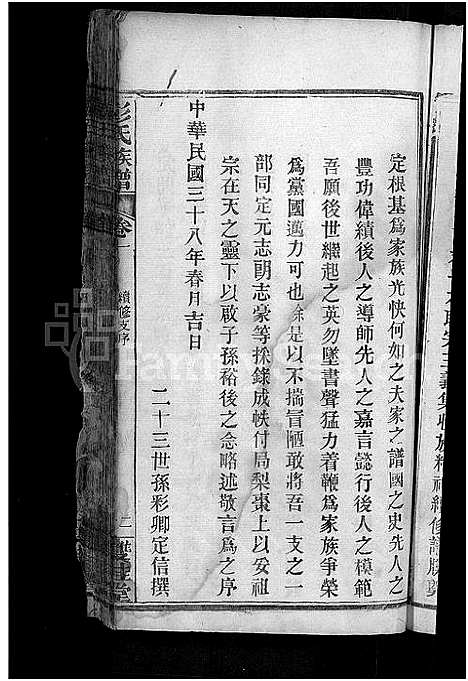 定根基爲家族光快何如之夫家之譜國之史先人之
豐功偉績後人之導師先人之嘉言懿行後人之模範
吾願後世繼起之英勿墜書聲猛力着鞭爲家族爭榮
爲黨國邁力可也餘是以不揣冒陋敢將吾一支之一
部同定元志朗志豪等採錄成帙付局梨棗上以安祖
宗在天之靈下以啟子孫裕後之念略述敬言爲之序
中華民國三十八年春月吉日
二十三世孫彩卿定信撰
彭氏族譜
卷一
續修支序
二
堂